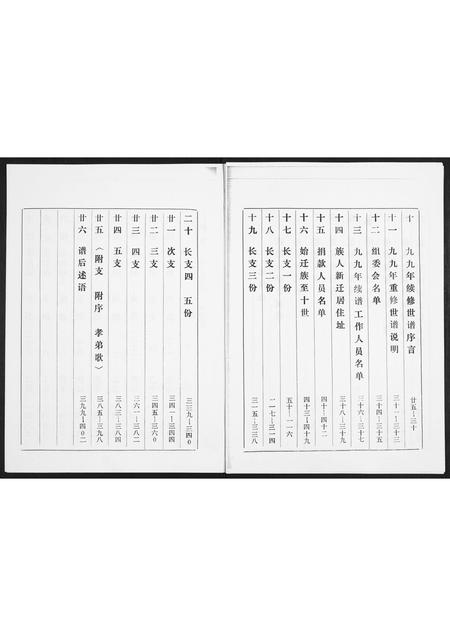 十 九九年续修世谱序言 廿五—三十
十一 九九年重修世谱说明 三十一—三十三
十二 组委会名单 三十四—三十五
十三 九九年续谱工作人员名单 三十六—三十七
十四 族人新迁居住址 三十八—三十九
十五 捐款人员名单 四十—四十二
十六 始迁族至十世 四十三—四十九
十七 长支一份 五十—一一六
十八 长支二份 一一七—三一四
十九 长支三份 三一五—三三八
二十 长支四 五份 三三九—三四〇
廿一 次支 三四一—三四四
廿二 三支 三四五—三六〇
廿三 四支 三六一—三八二
廿四 五支 三八三—三八四
廿五 〈附支 附序 孝弟歌〉 三八五—三九八
廿六 谱后述语 三九九—四〇二